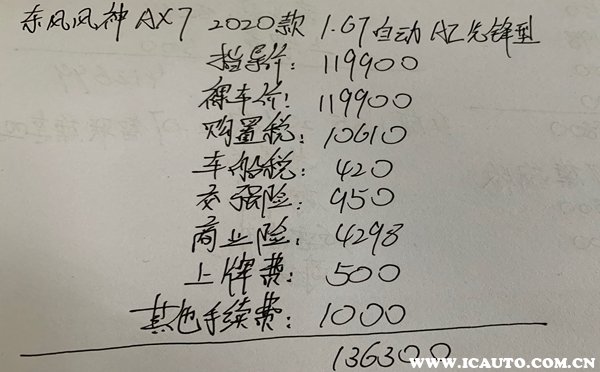 东风风神AX7 2020款 1.6T自动AI先锋型
指导价：119900
裸车价：119900
购置税：10610
车船税：420
交强险：950
商业险：4298
上牌费：500
其他手续费：1000
136300
WWW.ICAUTO.COM.CN